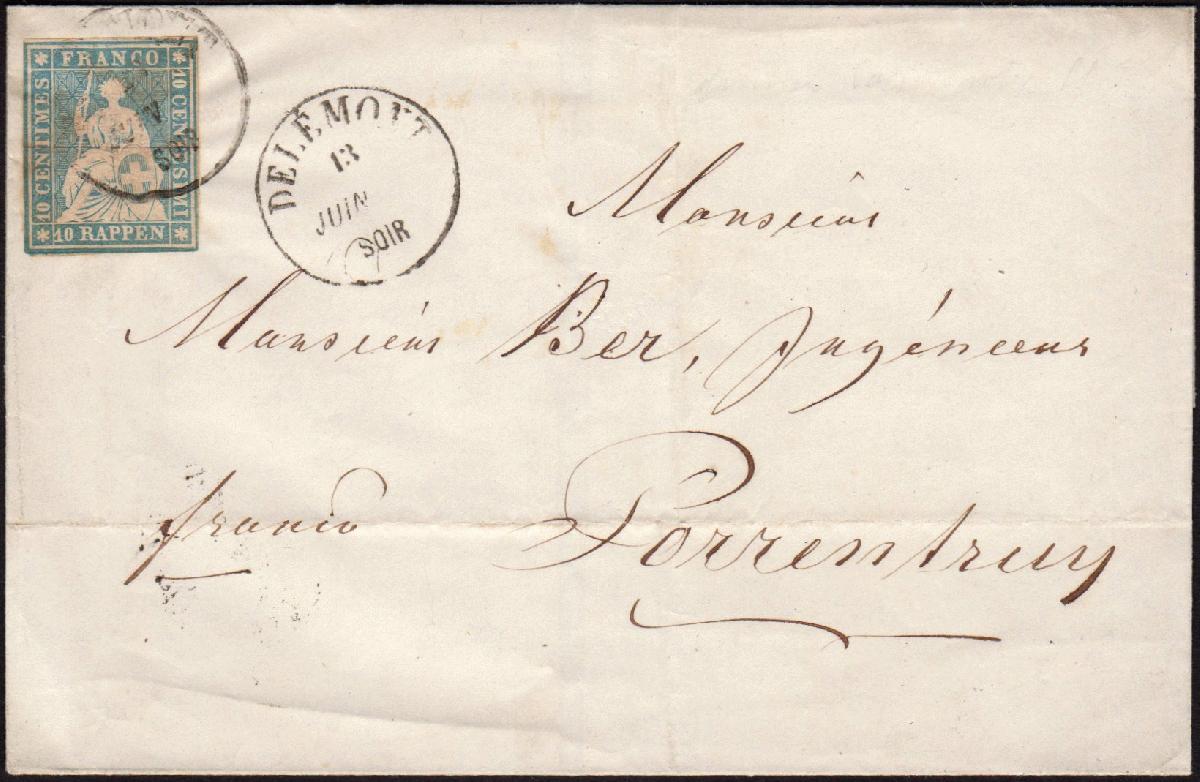 FRANCO
10 CENTIMES
10 CENTESIMI
10 RAPPEN
SOIR
DELÉMONT
13
JUIN
SOIR
Monsieur
Monsieur Ber, Ingénieur
franco
Porrentruy